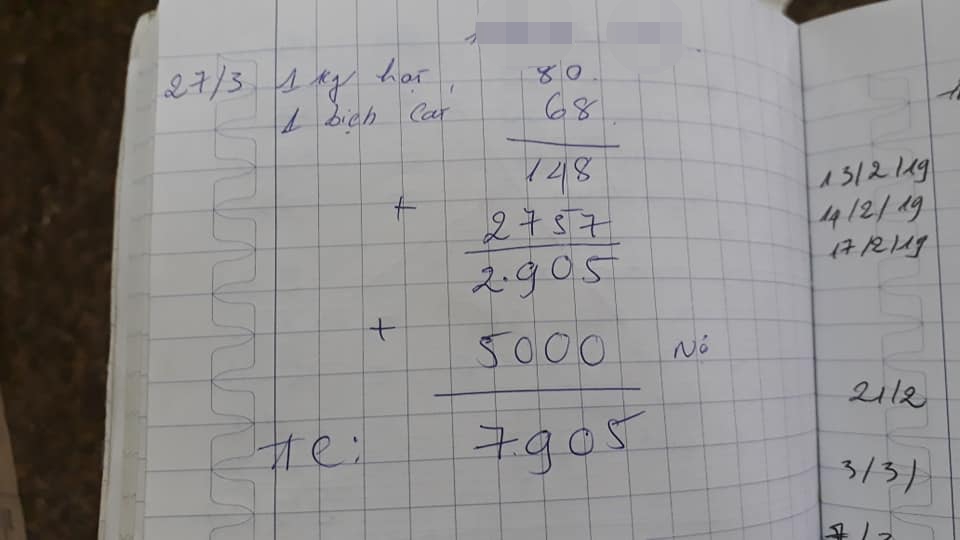 27/3 1 kg hạt, 80.
1 bịch Cat 68.
148
+ 2757
2.905
+ 5000 Nó
TC: 7.905
13/2/19
14/2/19
17/2/19
21/2
3/3/